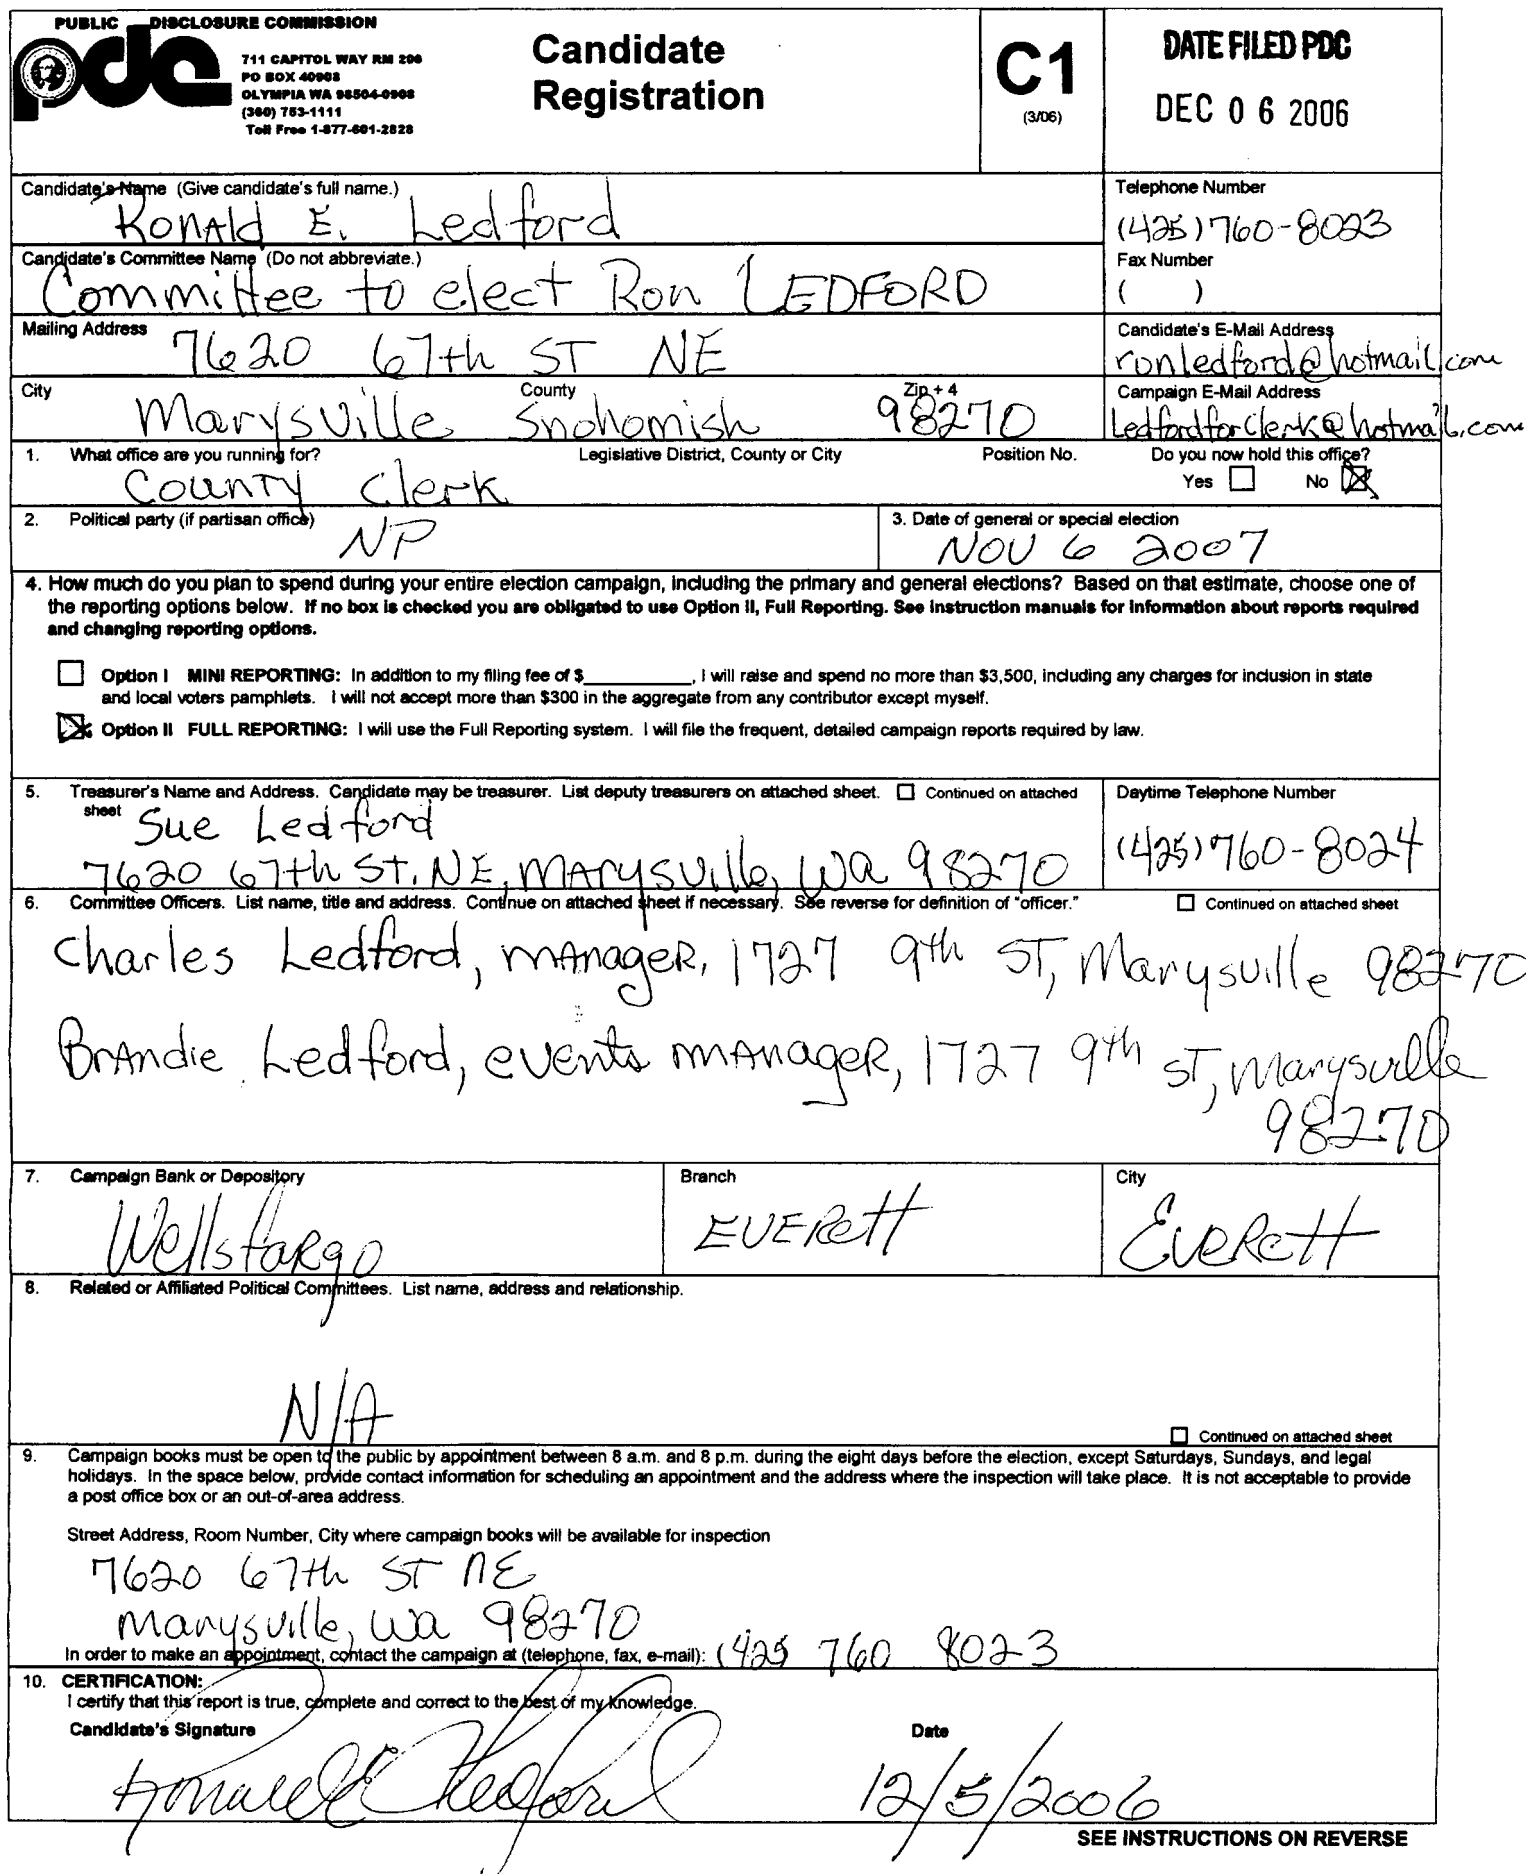 PUBLIC DISCLOSURE COMMISSION
pdc
711 CAPITOL WAY RM 206
PO BOX 40908
OLYMPIA WA 98504-0908
(360) 753-1111
Toll Free 1-877-601-2828
Candidate
Registration
C1
(3/06)
DATE FILED PDC
DEC 06 2006
Candidate's Name (Give candidate's full name.)
Ronald E. Ledford
Telephone Number
(425) 760-8023
Candidate's Committee Name (Do not abbreviate.)
Committee to elect Ron LEDFORD
Fax Number
( )
Mailing Address
7620 67th ST NE
Candidate's E-Mail Address
ronledford@hotmail.com
City County Zip + 4
Marysville Snohomish 98270
Campaign E-Mail Address
Ledfordforclerk@hotmail.com
1. What office are you running for? Legislative District, County or City Position No. Do you now hold this office?
County Clerk
Yes No
2. Political party (if partisan office)
NP
3. Date of general or special election
NOV 6 2007
4. How much do you plan to spend during your entire election campaign, including the primary and general elections? Based on that estimate, choose one of
the reporting options below. If no box is checked you are obligated to use Option II, Full Reporting. See instruction manuals for information about reports required
and changing reporting options.
Option I MINI REPORTING: In addition to my filing fee of $__________, I will raise and spend no more than $3,500, including any charges for inclusion in state
and local voters pamphlets. I will not accept more than $300 in the aggregate from any contributor except myself.
Option II FULL REPORTING: I will use the Full Reporting system. I will file the frequent, detailed campaign reports required by law.
5. Treasurer's Name and Address. Candidate may be treasurer. List deputy treasurers on attached sheet. Continued on attached
sheet
Sue Ledford
7620 67th ST. NE, Marysville, Wa 98270
Daytime Telephone Number
(425) 760-8024
6. Committee Officers. List name, title and address. Continue on attached sheet if necessary. See reverse for definition of "officer." Continued on attached sheet
Charles Ledford, manager, 1727 9th ST, Marysville 98270
Brandie Ledford, events manager, 1727 9th ST, Marysville
98270
7. Campaign Bank or Depository
Wells fargo
Branch
EVERett
City
EveRett
8. Related or Affiliated Political Committees. List name, address and relationship.
N/A
Continued on attached sheet
9. Campaign books must be open to the public by appointment between 8 a.m. and 8 p.m. during the eight days before the election, except Saturdays, Sundays, and legal
holidays. In the space below, provide contact information for scheduling an appointment and the address where the inspection will take place. It is not acceptable to provide
a post office box or an out-of-area address.
Street Address, Room Number, City where campaign books will be available for inspection
7620 67th ST NE
Marysville, Wa 98270
In order to make an appointment, contact the campaign at (telephone, fax, e-mail): (425 760 8023
10. CERTIFICATION:
I certify that this report is true, complete and correct to the best of my knowledge.
Candidate's Signature
Ronald E Ledford
Date
12/5/2006
SEE INSTRUCTIONS ON REVERSE